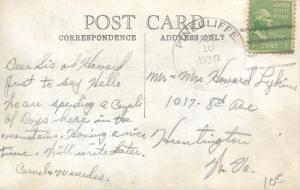 POST CARD
CORRESPONDENCE
ADDRESS ONLY
PINECLIFFE
10
1939
1 CENT 1
Dear Sis and Howard
Just to say Hello
We are spending a Couple
of Days here in the
mountains. Having a nice
time. Will write later.
Mr & Mrs Howard Lykins
1017-8th Ave
Huntington
W. Va.
10